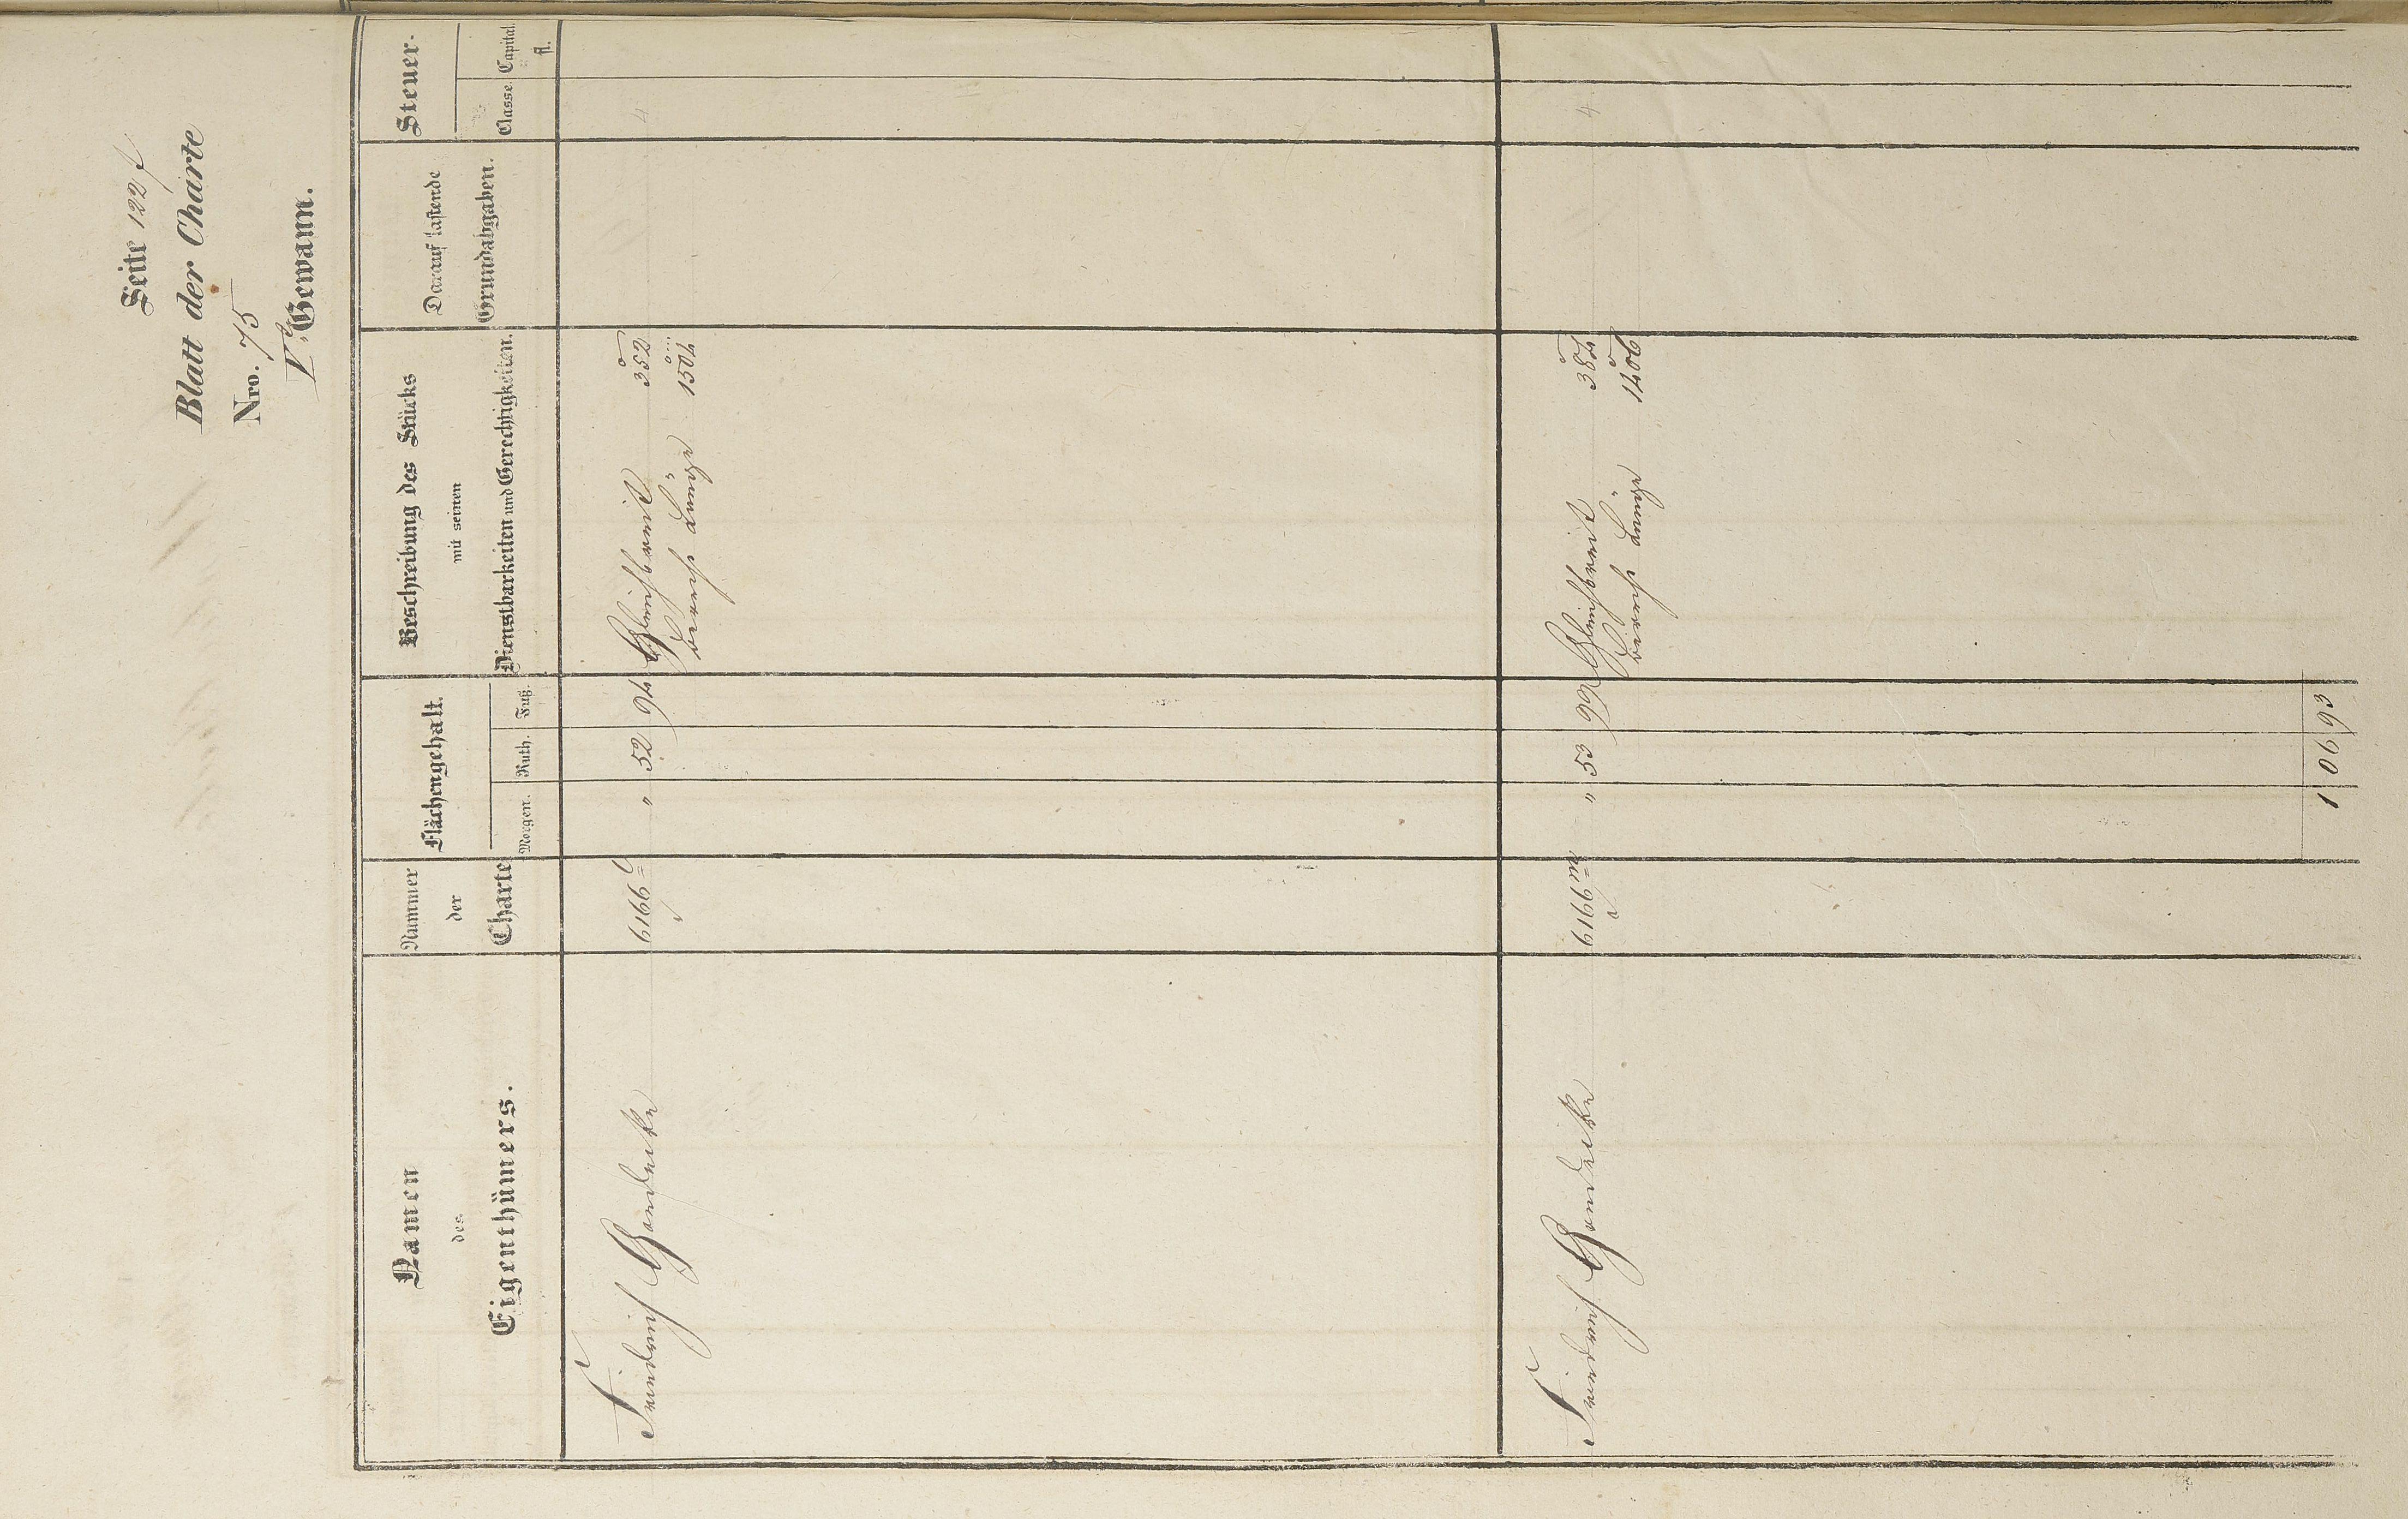 Seite 122 f
Blatt der Charte
Nro. 75
V.te Gewann.
Namen
des
Eigenthümers.
Nummer
der
Charte
Flächengehalt.
Morgen. Ruth. Fuß.
Beschreibung des Stücks
mit seinen
Dienstbarkeiten und Gerechtigkeiten.
Darauf lastende
Grundabgaben.
Steuer-
Classe. Capital.
fl.
Friedrich 6166 l " 52 94 Gleichbreit 352 4
durch Länge 1504
Friedrich 6166 m " 53 99 Gleichbreit 384 4
durch Länge 1406
1 06 93